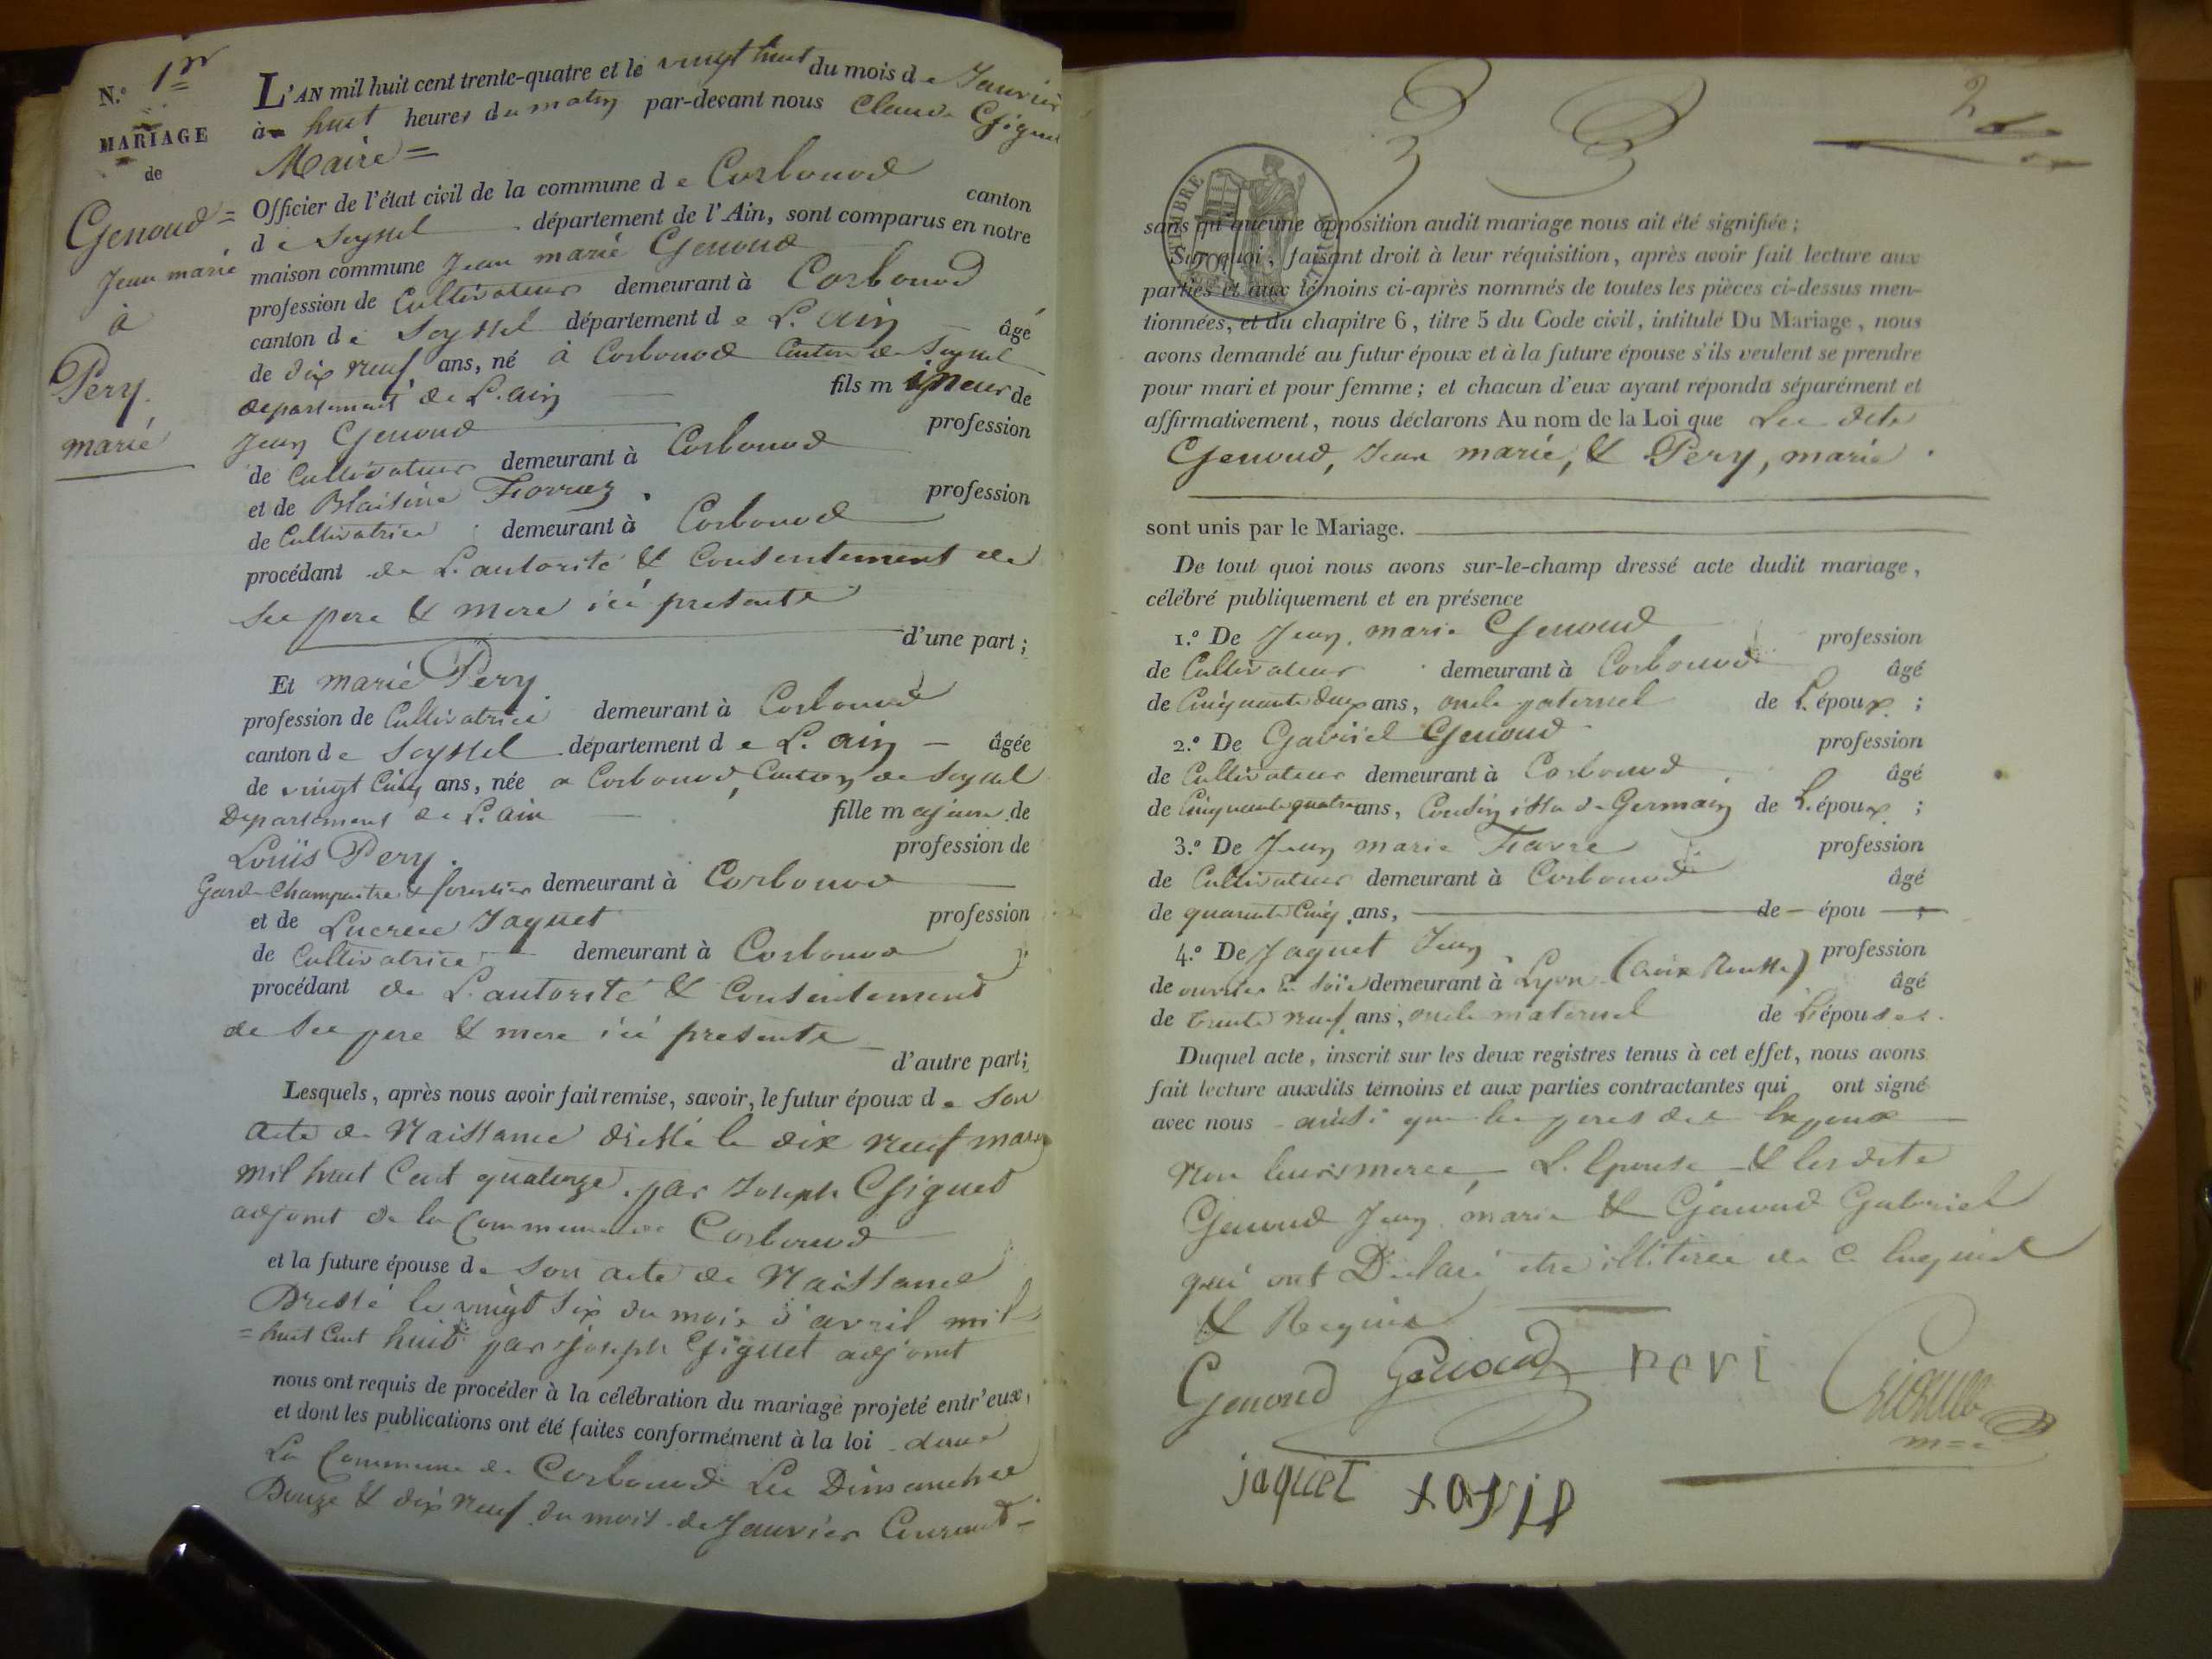 N.º 1er
MARIAGE
de
Genoud =
Jean marie
à
Pery
marie
L'AN mil huit cent trente-quatre et le vingt huit du mois de Janvier
à huit heures du matin par-devant nous Claude Giguet
Maire =
Officier de l'état civil de la commune de Corbonod canton
de Seyssel département de l'Ain, sont comparus en notre
maison commune Jean marie Genoud
profession de Cultivateur demeurant à Corbonod
canton de Seyssel département de L'ain âgé
de dix neuf ans, né à Corbonod Canton de Seyssel
département de L'ain fils mineur de
Jean Genoud profession
de Cultivateur demeurant à Corbonod
et de Blaisine profession
de Cultivatrice demeurant à Corbonod
procédant de L'autorité & Consentement de
ses pere & mere ici presents
d'une part ;
Et marie Pery
profession de Cultivatrice demeurant à Corbonod
canton de Seyssel département de L'ain — âgée
de vingt Cinq ans, née a Corbonod, Canton de Seyssel
Departement de L'ain fille majeure de
Louis Pery. profession de
Garde Champaitre & forestier demeurant à Corbonod
et de Lucrece Jaquet profession
de Cultivatrice demeurant à Corbonod
procédant de L'autorité & Consentement
de ses pere & mere ici presents
d'autre part ;
Lesquels, après nous avoir fait remise, savoir, le futur époux de son
acte de Naissance dressé le dix neuf mars
mil huit Cent quatorze par Joseph Giguet
adjoint de la Commune de Corbonod
et la future épouse de son acte de Naissance
Dressé le vingt six du mois d'avril mil
= huit Cent huit par Joseph Giguet adjoint
nous ont requis de procéder à la célébration du mariage projeté entr'eux,
et dont les publications ont été faites conformément à la loi dans
La Commune de Corbonod Les Dimanches
Douze & dix neuf du mois de Janvier Courant =
2
TIMBRE ROYAL
sans qu'aucune opposition audit mariage nous ait été signifiée ;
Sur quoi, faisant droit à leur réquisition, après avoir fait lecture aux
parties et aux témoins ci-après nommés de toutes les pièces ci-dessus men-
tionnées, et du chapitre 6, titre 5 du Code civil, intitulé Du Mariage, nous
avons demandé au futur époux et à la future épouse s'ils veulent se prendre
pour mari et pour femme ; et chacun d'eux ayant répondu séparément et
affirmativement, nous déclarons Au nom de la Loi que Les dits
Genoud, Jean marie, & Pery, marie.
sont unis par le Mariage.
De tout quoi nous avons sur-le-champ dressé acte dudit mariage,
célébré publiquement et en présence
1.º De Jean marie Genoud profession
de Cultivateur demeurant à Corbonod âgé
de Cinquante deux ans, oncle paternel de L'époux ;
2.º De Gabriel Genoud profession
de Cultivateur demeurant à Corbonod âgé
de Cinquante quatre ans, Cousin issu de Germain de L'époux ;
3.º De Jean marie Favre profession
de Cultivateur demeurant à Corbonod âgé
de quarante Cinq ans, — de — épou — ;
4.º De Jaquet Jean profession
de ouvrier en Soie demeurant à Lyon (Croix Rousse) âgé
de trente neuf ans, oncle maternel de L'épouse.
Duquel acte, inscrit sur les deux registres tenus à cet effet, nous avons
fait lecture auxdits témoins et aux parties contractantes qui ont signé
avec nous ainsi que les peres des Epoux
Non leurs meres, L'Epouse & les dits
Genoud Jean marie & Genoud Gabriel
qui ont Déclaré etre illiteres de ce Enquis
& Requis
Genoud Genoud peri Giguet
m = e
jaquet